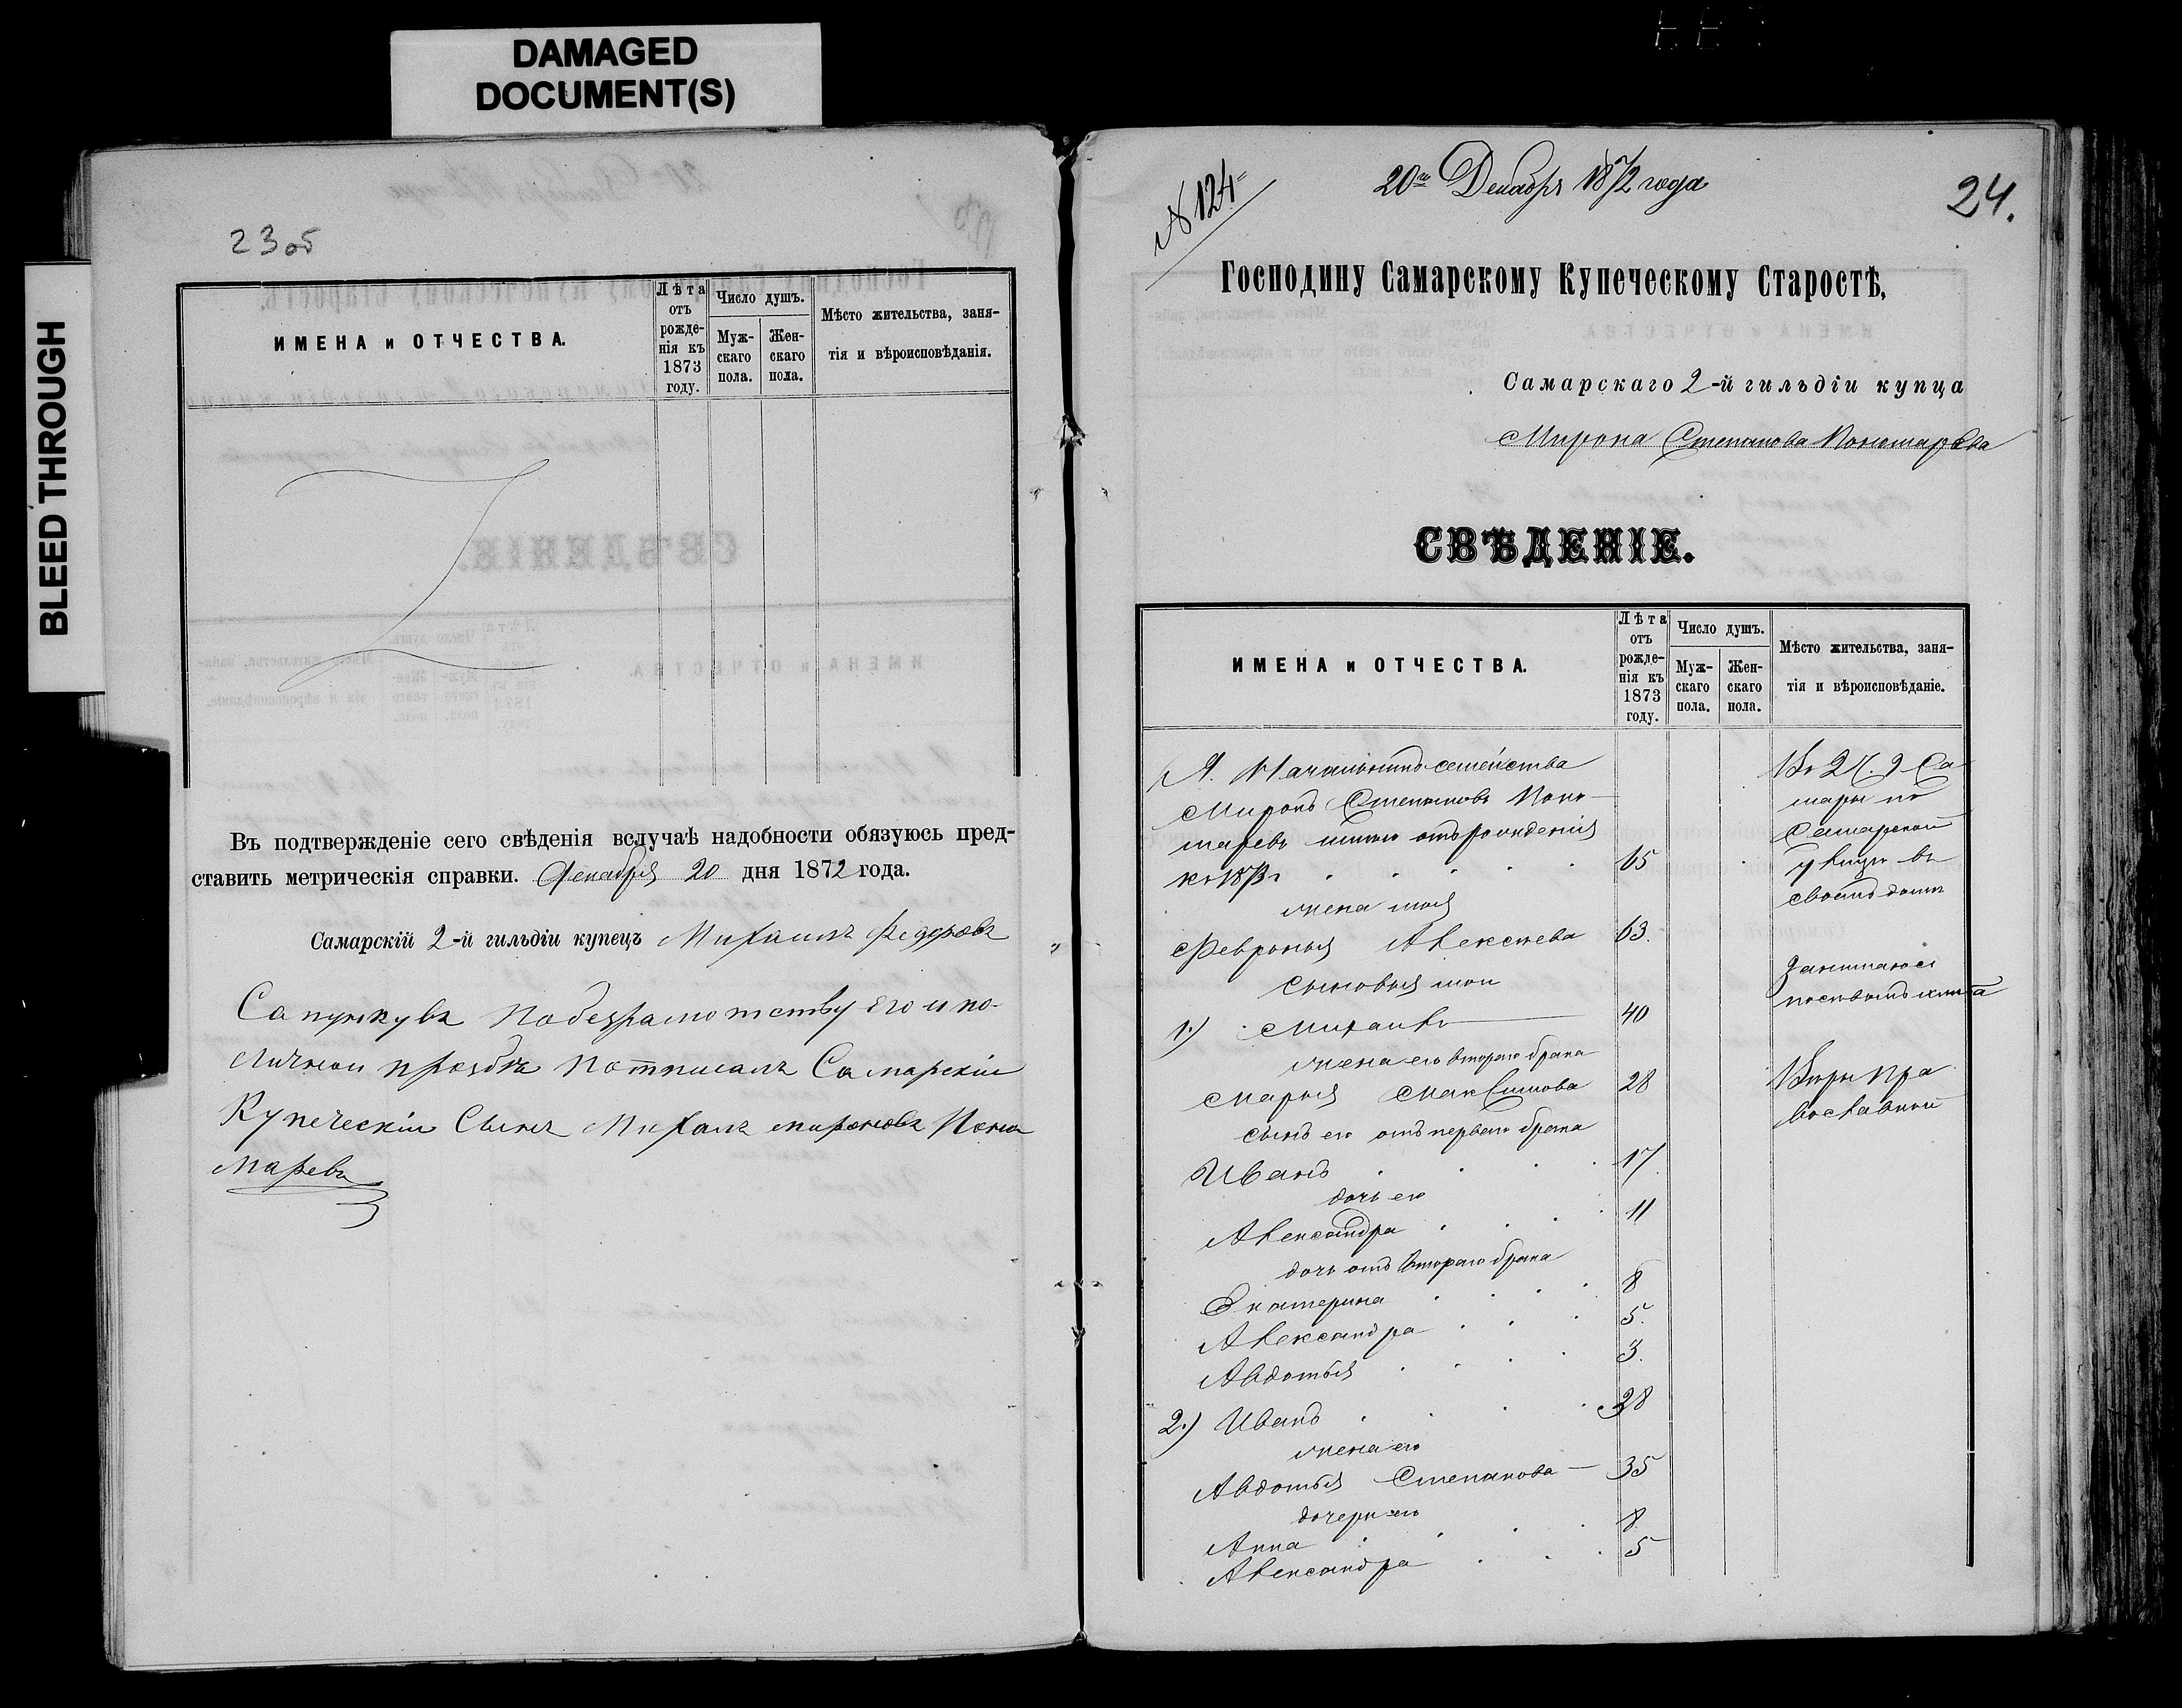 DAMAGED
DOCUMENT(S)
BLEED THROUGH
23 об
ИМЕНА и ОТЧЕСТВА.
Лѣта
отъ
рожде-
нія къ
1873
году.
Число душъ.
Муж-
скаго
пола.
Жен-
скаго
пола.
Мѣсто жительства, заня-
тія и вѣроисповѣданія.
Въ подтвержденіе сего свѣденія вслучаѣ надобности обязуюсь пред-
ставить метрическія справки. Декабря 20 дня 1872 года.
Самарскій 2-й гильдіи купецъ Михаилъ Федоровъ
по безграмотству его и по
личной прозбѣ потписалъ Самарскій
Купеческій Сынъ Михалъ мироновъ Поно
маревъ
№ 124
20го Декабря 1872 года
24.
Господину Самарскому Купеческому Старостѣ,
Самарскаго 2-й гильдіи купца
Мирона Степанова Пономарева
СВѢДЕНІЕ.
ИМЕНА и ОТЧЕСТВА.
Лѣта
отъ
рожде-
нія къ
1873
году.
Число душъ.
Муж-
скаго
пола.
Жен-
скаго
пола.
Мѣсто жительства, заня-
тія и вѣроисповѣданіе.
Я. Начальникъ семейства
Миронъ Степановъ Поно-
маревъ отъ рожденія
къ 1873 г 65
жена моя
Февронья Алексеева 63.
сыновья мои
1.) Михаилъ 40
жена его втораго брака
Марья Максимова 28
сынъ его отъ перваго брака
Иванъ 17.
дочь его
Александра 11
дочь отъ втораго брака
Екатерина 8
Александра 5.
Авдотья 3.
2.) Иванъ 38
жена его
Авдотья Степанова 35
дочери его
Анна 8
Александра 5
Во 2 Ч. г Са
мары по
Самарской
улицы въ
своемъ доме
Занимаюсь
посевомъ хлеба
Веры пра
вославной